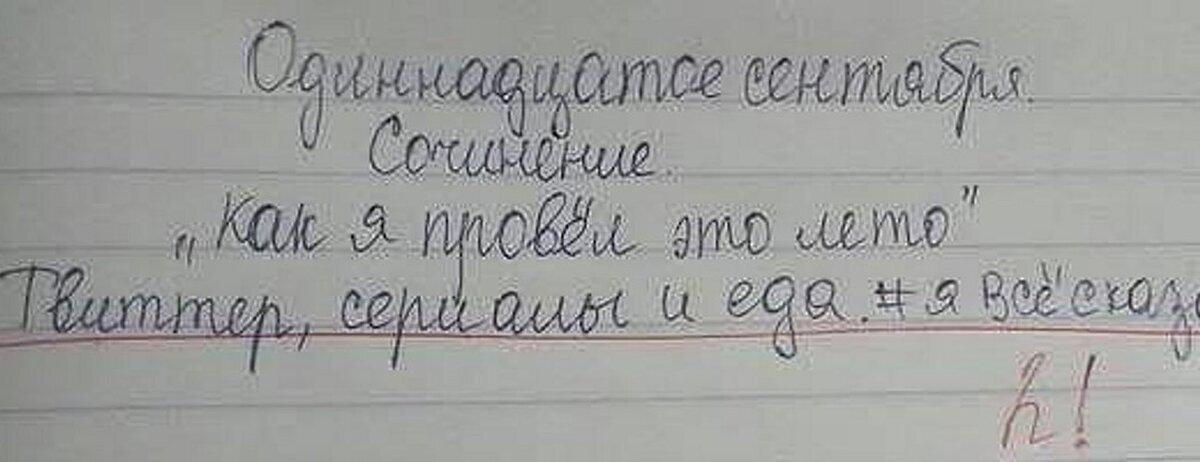 Одиннадцатое сентября.
Сочинение.
„Как я провёл это лето”
Твиттер, сериалы и еда. #я всё